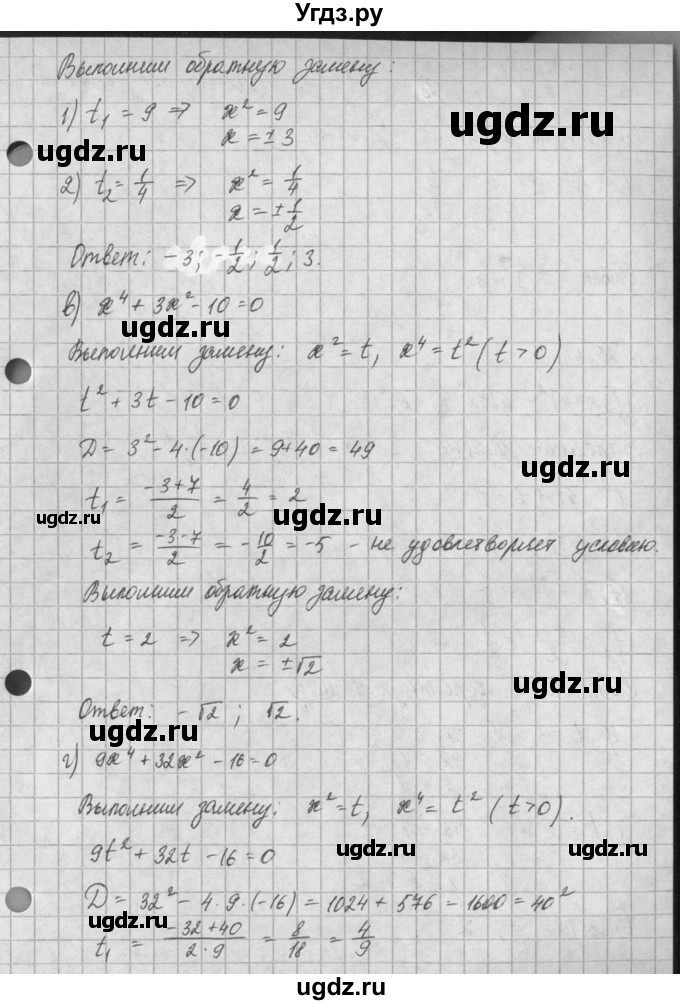 Угдз.ру
Выполним обратную замену:
1) t₁ = 9 ⇒ x² = 9
x = ± 3
ugdz.ru
ugdz.ru
2) t₂ = 1/4 ⇒ x² = 1/4
x = ± 1/2
Ответ: -3; -1/2; 1/2; 3.
в) x⁴ + 3x² - 10 = 0
ugdz.ru
Выполним замену: x² = t, x⁴ = t² (t > 0)
t² + 3t - 10 = 0
D = 3² - 4·(-10) = 9 + 40 = 49
ugdz.ru
t₁ = (-3+7)/2 = 4/2 = 2
ugdz.ru
ugdz.ru
t₂ = (-3-7)/2 = -10/2 = -5 - не удовлетворяет условию.
Выполним обратную замену:
ugdz.ru
t = 2 ⇒ x² = 2
x = ± √2
ugdz.ru
Ответ: -√2; √2.
ugdz.ru
г) 9x⁴ + 32x² - 16 = 0
Выполним замену: x² = t, x⁴ = t² (t > 0).
9t² + 32t - 16 = 0
ugdz.ru
ugdz.ru
D = 32² - 4·9·(-16) = 1024 + 576 = 1600 = 40²
ugdz.ru
t₁ = (-32+40)/(2·9) = 8/18 = 4/9
ugdz.ru
ugdz.ru